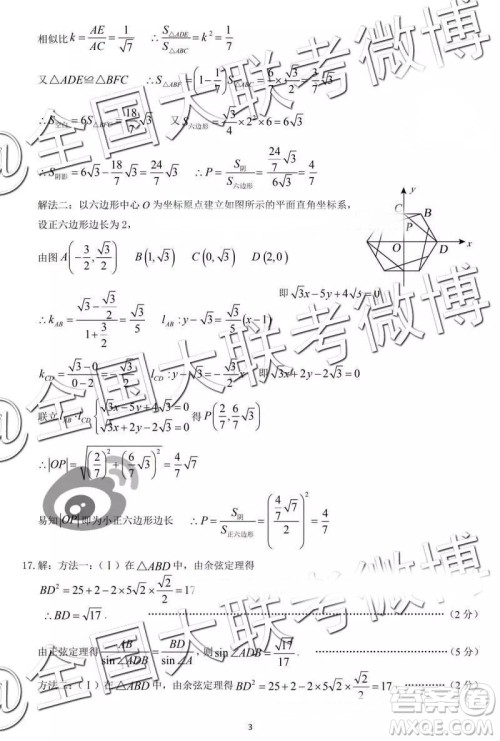 相似比 k = AE/AC = 1/√7  ∴ S△ADE/S△ABC = k² = 1/7
又△ADE≌△BFC  ∴ S△ABF = (1 − 1/7 S△ABC = 6/7 √3
∴ S = 6S△BFC = 18/7 √3  又 S六边形 = √3/4 × 2² × 6 = 6√3
∴ S阴影 = 6√3 − 18/7 √3 = 24/7 √3  ∴ P = S阴/S六边形 = (24/7 √3)/(6√3) = 4/7
解法二：以六边形中心 O 为坐标原点建立如图所示的平面直角坐标系，
设正六边形边长为 2，
由图 A(−3/2, √3/2)  B(1, √3)  C(0, √3)  D(2, 0)
y
C
B
P
O
D
x
∴ k_AB = (√3 − √3/2)/(1 + 3/2) = √3/5  l_AB : y − √3 = √3/5 (x − 1)  即 √3x − 5y + 4√3 = 0
k_CD = (√3 − 0)/(0 − 2) = −√3/2  l_CD : y − √3 = −√3/2 x  即 √3x + 2y − 2√3 = 0
联立 l_AB · l_CD {√3x − 5y + 4√3 = 0
√3x + 2y − 2√3 = 0  得 P(2/7, 6/7 √3)
∴ |OP| = √((2/7)² + (6/7 √3)²) = 4/7 √7
易知 |OP| 即为小正六边形边长  ∴ P = S阴/S正六边形 = ((4/7 √7)/2)² = 4/7
17. 解：方法一：(Ⅰ) 在△ABD 中，由余弦定理得
BD² = 25 + 2 − 2×5√2×√2/2 = 17
∴ BD = √17 . ……………………………… (2 分)
由正弦定理得 AB/sin∠ADB = BD/sin∠A ，则 sin∠ADB = √17/17 . ……………… (5 分)
方法二：(Ⅰ) 在△ABD 中，由余弦定理得 BD² = 25 + 2 − 2×5√2×√2/2 = 17
∴ BD = √17 .
3
@全国大联考微博
@全国大联考微博